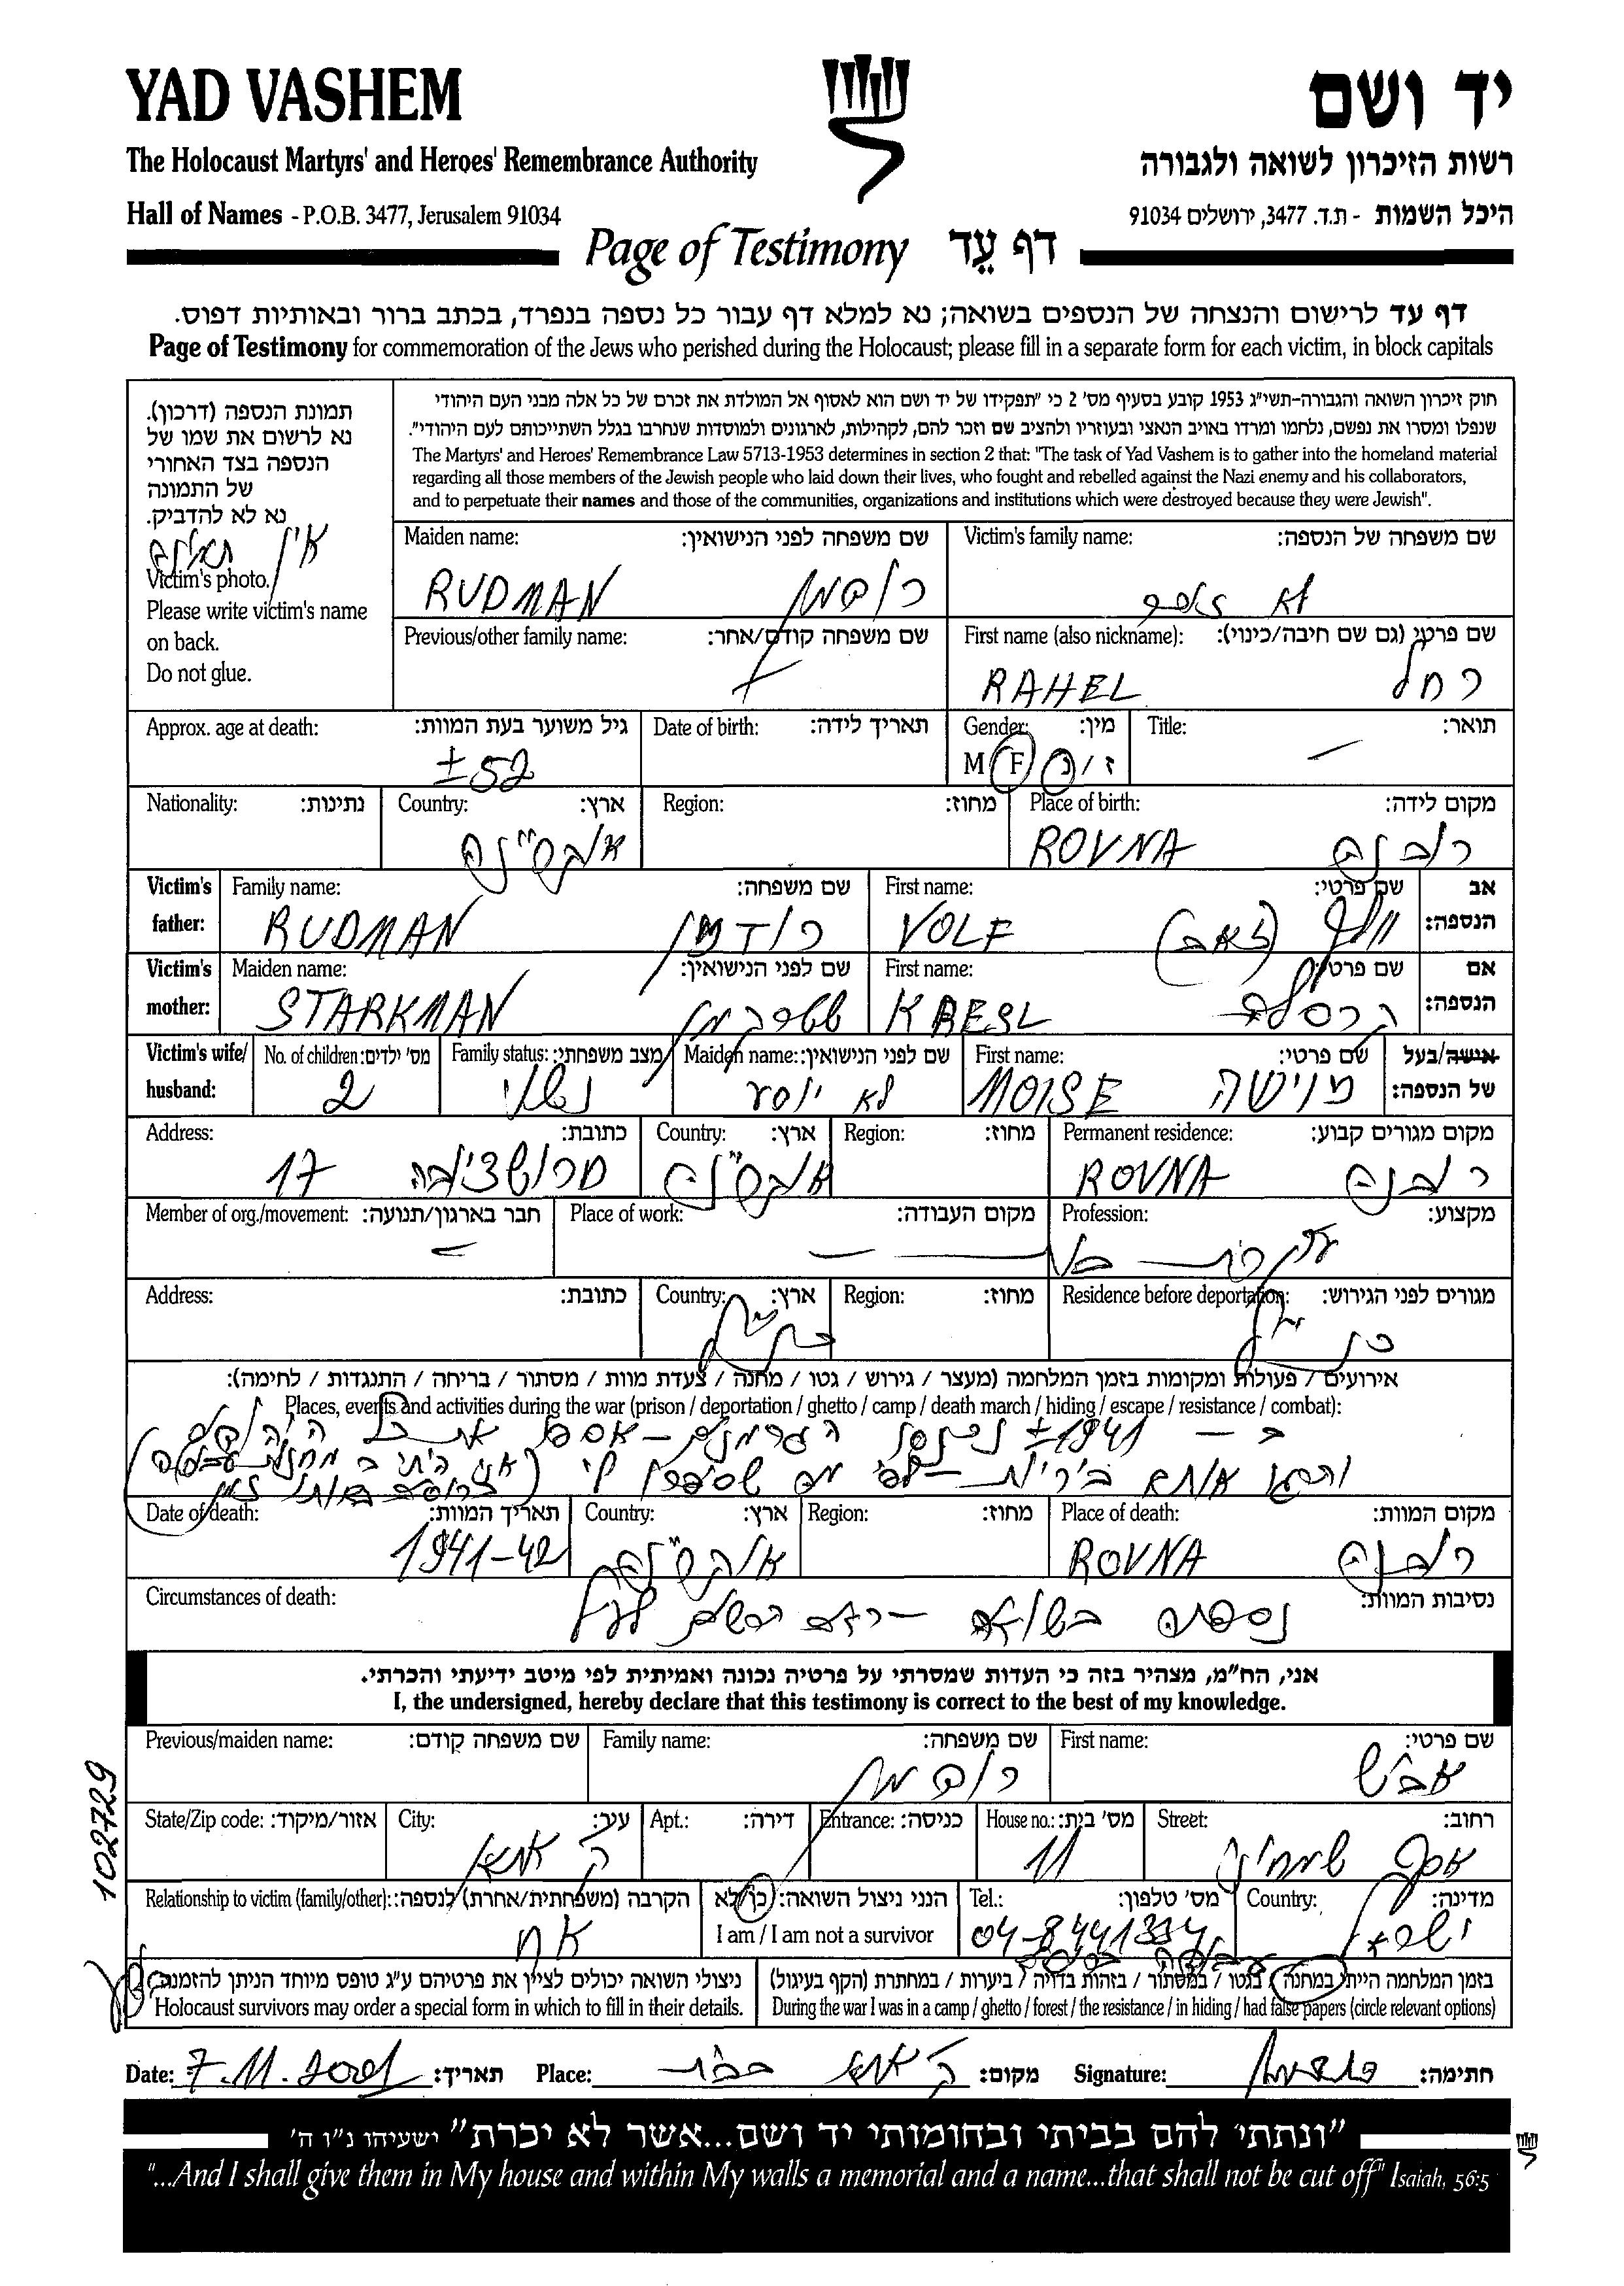 YAD VASHEM
יד ושם
The Holocaust Martyrs' and Heroes' Remembrance Authority
רשות הזיכרון לשואה ולגבורה
Hall of Names - P.O.B. 3477, Jerusalem 91034
היכל השמות - ת.ד. 3477, ירושלים 91034
Page of Testimony דף עֵד
דף עד לרישום והנצחה של הנספים בשואה; נא למלא דף עבור כל נספה בנפרד, בכתב ברור ובאותיות דפוס.
Page of Testimony for commemoration of the Jews who perished during the Holocaust; please fill in a separate form for each victim, in block capitals
תמונת הנספה (דרכון).
נא לרשום את שמו של
הנספה בצד האחורי
של התמונה
נא לא להדביק.
אין תמונה
Victim's photo.
Please write victim's name
on back.
Do not glue.
חוק זיכרון השואה והגבורה-תשי"ג 1953 קובע בסעיף מס' 2 כי "תפקידו של יד ושם הוא לאסוף אל המולדת את זכרם של כל אלה מבני העם היהודי
שנפלו ומסרו את נפשם, נלחמו ומרדו באויב הנאצי ובעוזריו ולהציב שם וזכר להם, לקהילות, לארגונים ולמוסדות שנחרבו בגלל השתייכותם לעם היהודי".
The Martyrs' and Heroes' Remembrance Law 5713-1953 determines in section 2 that: "The task of Yad Vashem is to gather into the homeland material
regarding all those members of the Jewish people who laid down their lives, who fought and rebelled against the Nazi enemy and his collaborators,
and to perpetuate their names and those of the communities, organizations and institutions which were destroyed because they were Jewish".
Maiden name: שם משפחה לפני הנישואין:
RUDMAN רודמן
Victim's family name: שם משפחה של הנספה:
לא
Previous/other family name: שם משפחה קודם/אחר:
First name (also nickname): שם פרטי (גם שם חיבה/כינוי):
RAHEL רחל
Approx. age at death: גיל משוער בעת המוות:
±52
Date of birth: תאריך לידה:
Gender: מין:
M F ז / נ
Title: תואר:
Nationality: נתינות:
Country: ארץ:
אוקראינה
Region: מחוז:
Place of birth: מקום לידה:
ROVNA רובנה
Victim's father: אב הנספה:
Family name: שם משפחה:
RUDMAN רודמן
First name: שם פרטי:
VOLF וולף (זאב)
Victim's mother: אם הנספה:
Maiden name: שם לפני הנישואין:
STARKMAN שטרקמן
First name: שם פרטי:
Victim's wife/ husband: אישה/בעל של הנספה:
No. of children: מס' ילדים:
2
Family status: מצב משפחתי:
נשוי
Maiden name: שם לפני הנישואין:
לא ידוע
First name: שם פרטי:
MOISE מוישה
Address: כתובת:
17
Country: ארץ:
אוקראינה
Region: מחוז:
Permanent residence: מקום מגורים קבוע:
ROVNA רובנה
Member of org./movement: חבר בארגון/תנועה:
Place of work: מקום העבודה:
Profession: מקצוע:
עקרת בית
Address: כתובת:
Country: ארץ:
כנ"ל
Region: מחוז:
Residence before deportation: מגורים לפני הגירוש:
כנ"ל
אירועים / פעולות ומקומות בזמן המלחמה (מעצר / גירוש / גטו / מחנה / צעדת מוות / מסתור / בריחה / התנגדות / לחימה):
Places, events and activities during the war (prison / deportation / ghetto / camp / death march / hiding / escape / resistance / combat):
ב - 1941± נכנסו הגרמנים - אספו את כל היהודים
והרגו אותם ביריות - לפי מה שסיפרו לי (אני הייתי במחנות עבודה
ברוסיה באותו זמן)
Date of death: תאריך המוות:
1941-42
Country: ארץ:
אוקראינה
Region: מחוז:
Place of death: מקום המוות:
ROVNA רובנה
Circumstances of death: נסיבות המוות:
נספתה בשואה - רשום לעיל
אני, הח"מ, מצהיר בזה כי העדות שמסרתי על פרטיה נכונה ואמיתית לפי מיטב ידיעתי והכרתי.
I, the undersigned, hereby declare that this testimony is correct to the best of my knowledge.
Previous/maiden name: שם משפחה קודם:
Family name: שם משפחה:
רודמן
First name: שם פרטי:
אברש
State/Zip code: אזור/מיקוד:
City: עיר:
ק אתא
Apt.: דירה:
Entrance: כניסה:
House no.: מס' בית:
11
Street: רחוב:
אסף שמחוני
Relationship to victim (family/other): הקרבה (משפחתית/אחרת) לנספה:
אח
הנני ניצול השואה: כן/לא
I am / I am not a survivor
Tel.: מס' טלפון:
04-8441334
Country: מדינה:
ישראל
ניצולי השואה יכולים לציין את פרטיהם ע"ג טופס מיוחד הניתן להזמנה.
Holocaust survivors may order a special form in which to fill in their details.
עבודה ברוסיה
בזמן המלחמה הייתי במחנה / בגטו / במסתור / בזהות בדויה / ביערות / במחתרת (הקף בעיגול)
During the war I was in a camp / ghetto / forest / the resistance / in hiding / had false papers (circle relevant options)
102729
Date: 7.11.2001 תאריך: Place: ק אתא מקום: Signature: רודמן חתימה:
"ונתתי להם בביתי ובחומותי יד ושם...אשר לא יכרת" ישעיהו נ"ו ה'
"...And I shall give them in My house and within My walls a memorial and a name...that shall not be cut off" Isaiah, 56:5